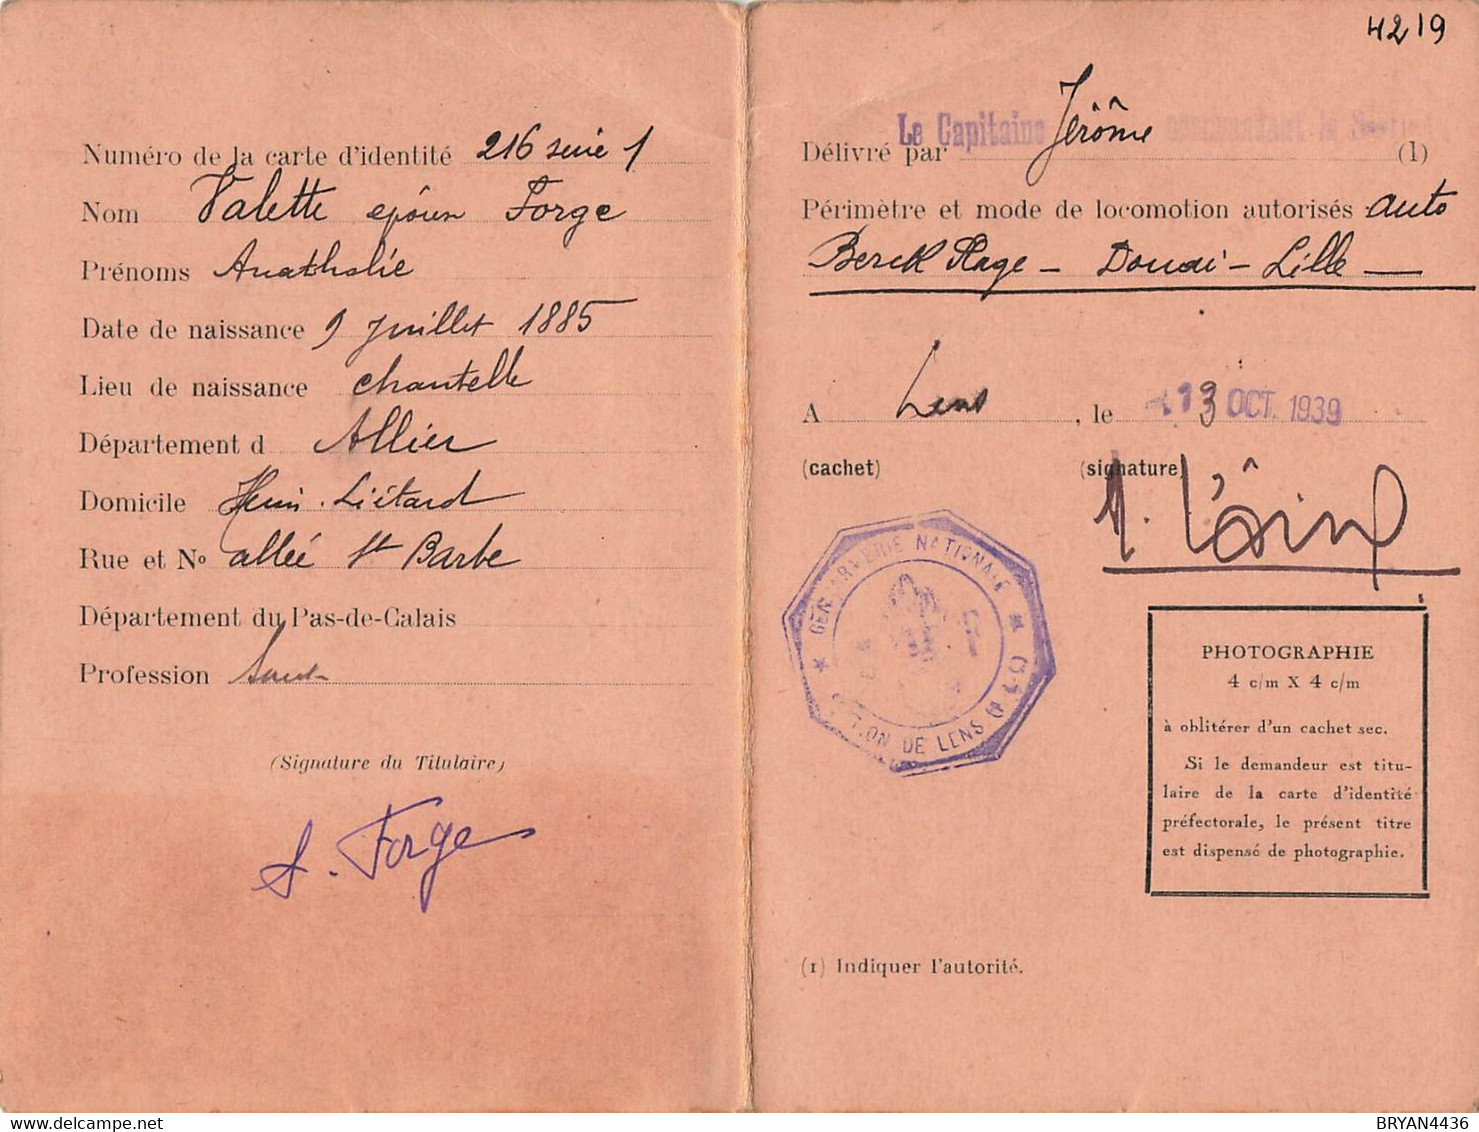 Numéro de la carte d'identité 216 serie 1
Nom Valette épouse Forge
Prénoms Anathalie
Date de naissance 9 juillet 1885
Lieu de naissance chantelle
Département d Allier
Domicile Henri-Liétard
Rue et No allée St Barbe
Département du Pas-de-Calais
Profession
(Signature du Titulaire)
A. Forge
4219
Le Capitaine Jérôme commandant la Section
Délivré par (1)
Périmètre et mode de locomotion autorisés auto
Berck Plage - Douai - Lille
A Lens, le 13 OCT. 1939
(cachet) (signature)
GENDARMERIE NATIONALE
SECTION DE LENS
PHOTOGRAPHIE
4 c/m X 4 c/m
à oblitérer d'un cachet sec.
Si le demandeur est titu-
laire de la carte d'identité
préfectorale, le présent titre
est dispensé de photographie.
(1) Indiquer l'autorité.
delcampe.net
BRYAN4436